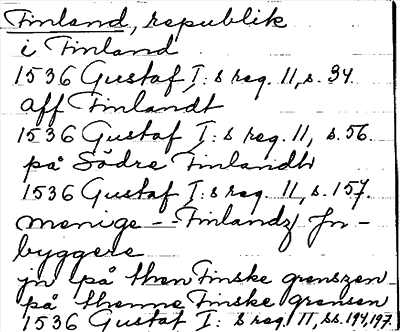 Finland, republik
i Finland
1536 Gustaf I:s reg. 11, s. 34.
aff Finlandt
1536 Gustaf I:s reg. 11, s. 56.
på Södre Finlandh
1536 Gustaf I:s reg. 11, s. 157.
menige -- Finlandz Jn-
byggere
jn på then Finske grenszen
på thenne Finske grensen
1536 Gustaf I: s reg. 11 s.s. 194,197.